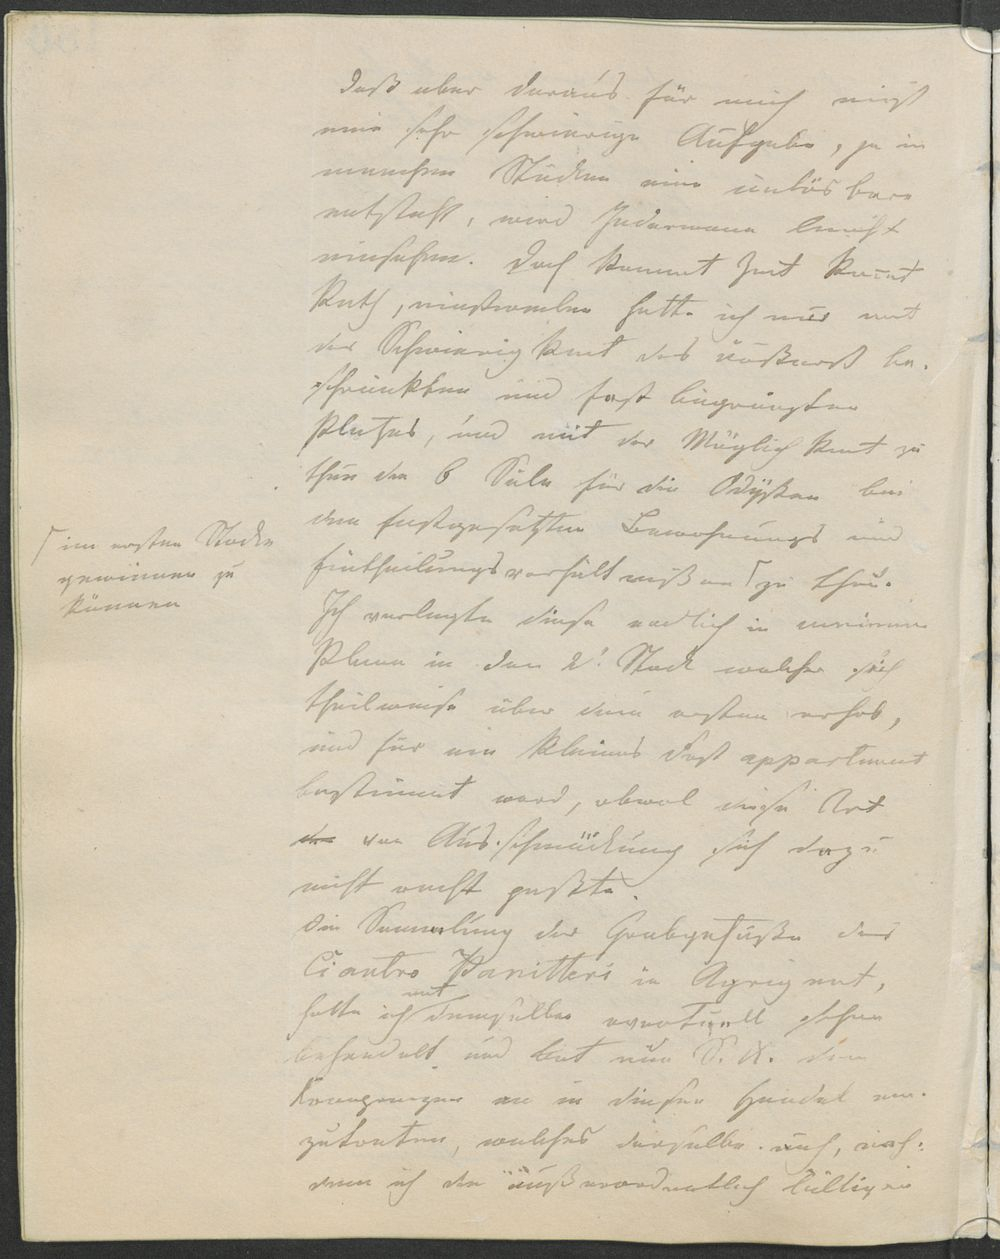 Daß aber daraus für mich nicht
eine sehr schwierige Aufgabe, ja in
manchen Stücken eine unlösbare
entsteht, wird Jedermann leicht
einsehen. Doch kommt Zeit kommt
Rath, einstweilen hatte ich nur mit
der Schwierigkeit des äußerst be-
schränkten und fast begränzten
Platzes, und mit der Möglichkeit zu
thun den 6 Säle für die Odyßee bei
den festgesetzten Bewohnungs und
Eintheilungsverhältnißen ⌈ zu thun.
⌈ im ersten Stocke
gewinnen zu
können
Ich verlegte diese endlich in meinem
Plane in den 2t. Stock welcher sich
theilweise über dem ersten erhob,
und für ein kleines Fest appartement
bestimmt ward, obwol diese Art
von Ausschmückung sich dazu
nicht recht paßte.
Die Sammlung der Grabgefäße des
Ciantro Panitteri in Agrigent,
hatte ich mit demselben eventuell schon
behandelt und bot nun S. K. dem
Kronprinzen an in diesen Handel ein-
zutreten, welches derselbe auch, nach-
dem ich die äußerordentlich billigen